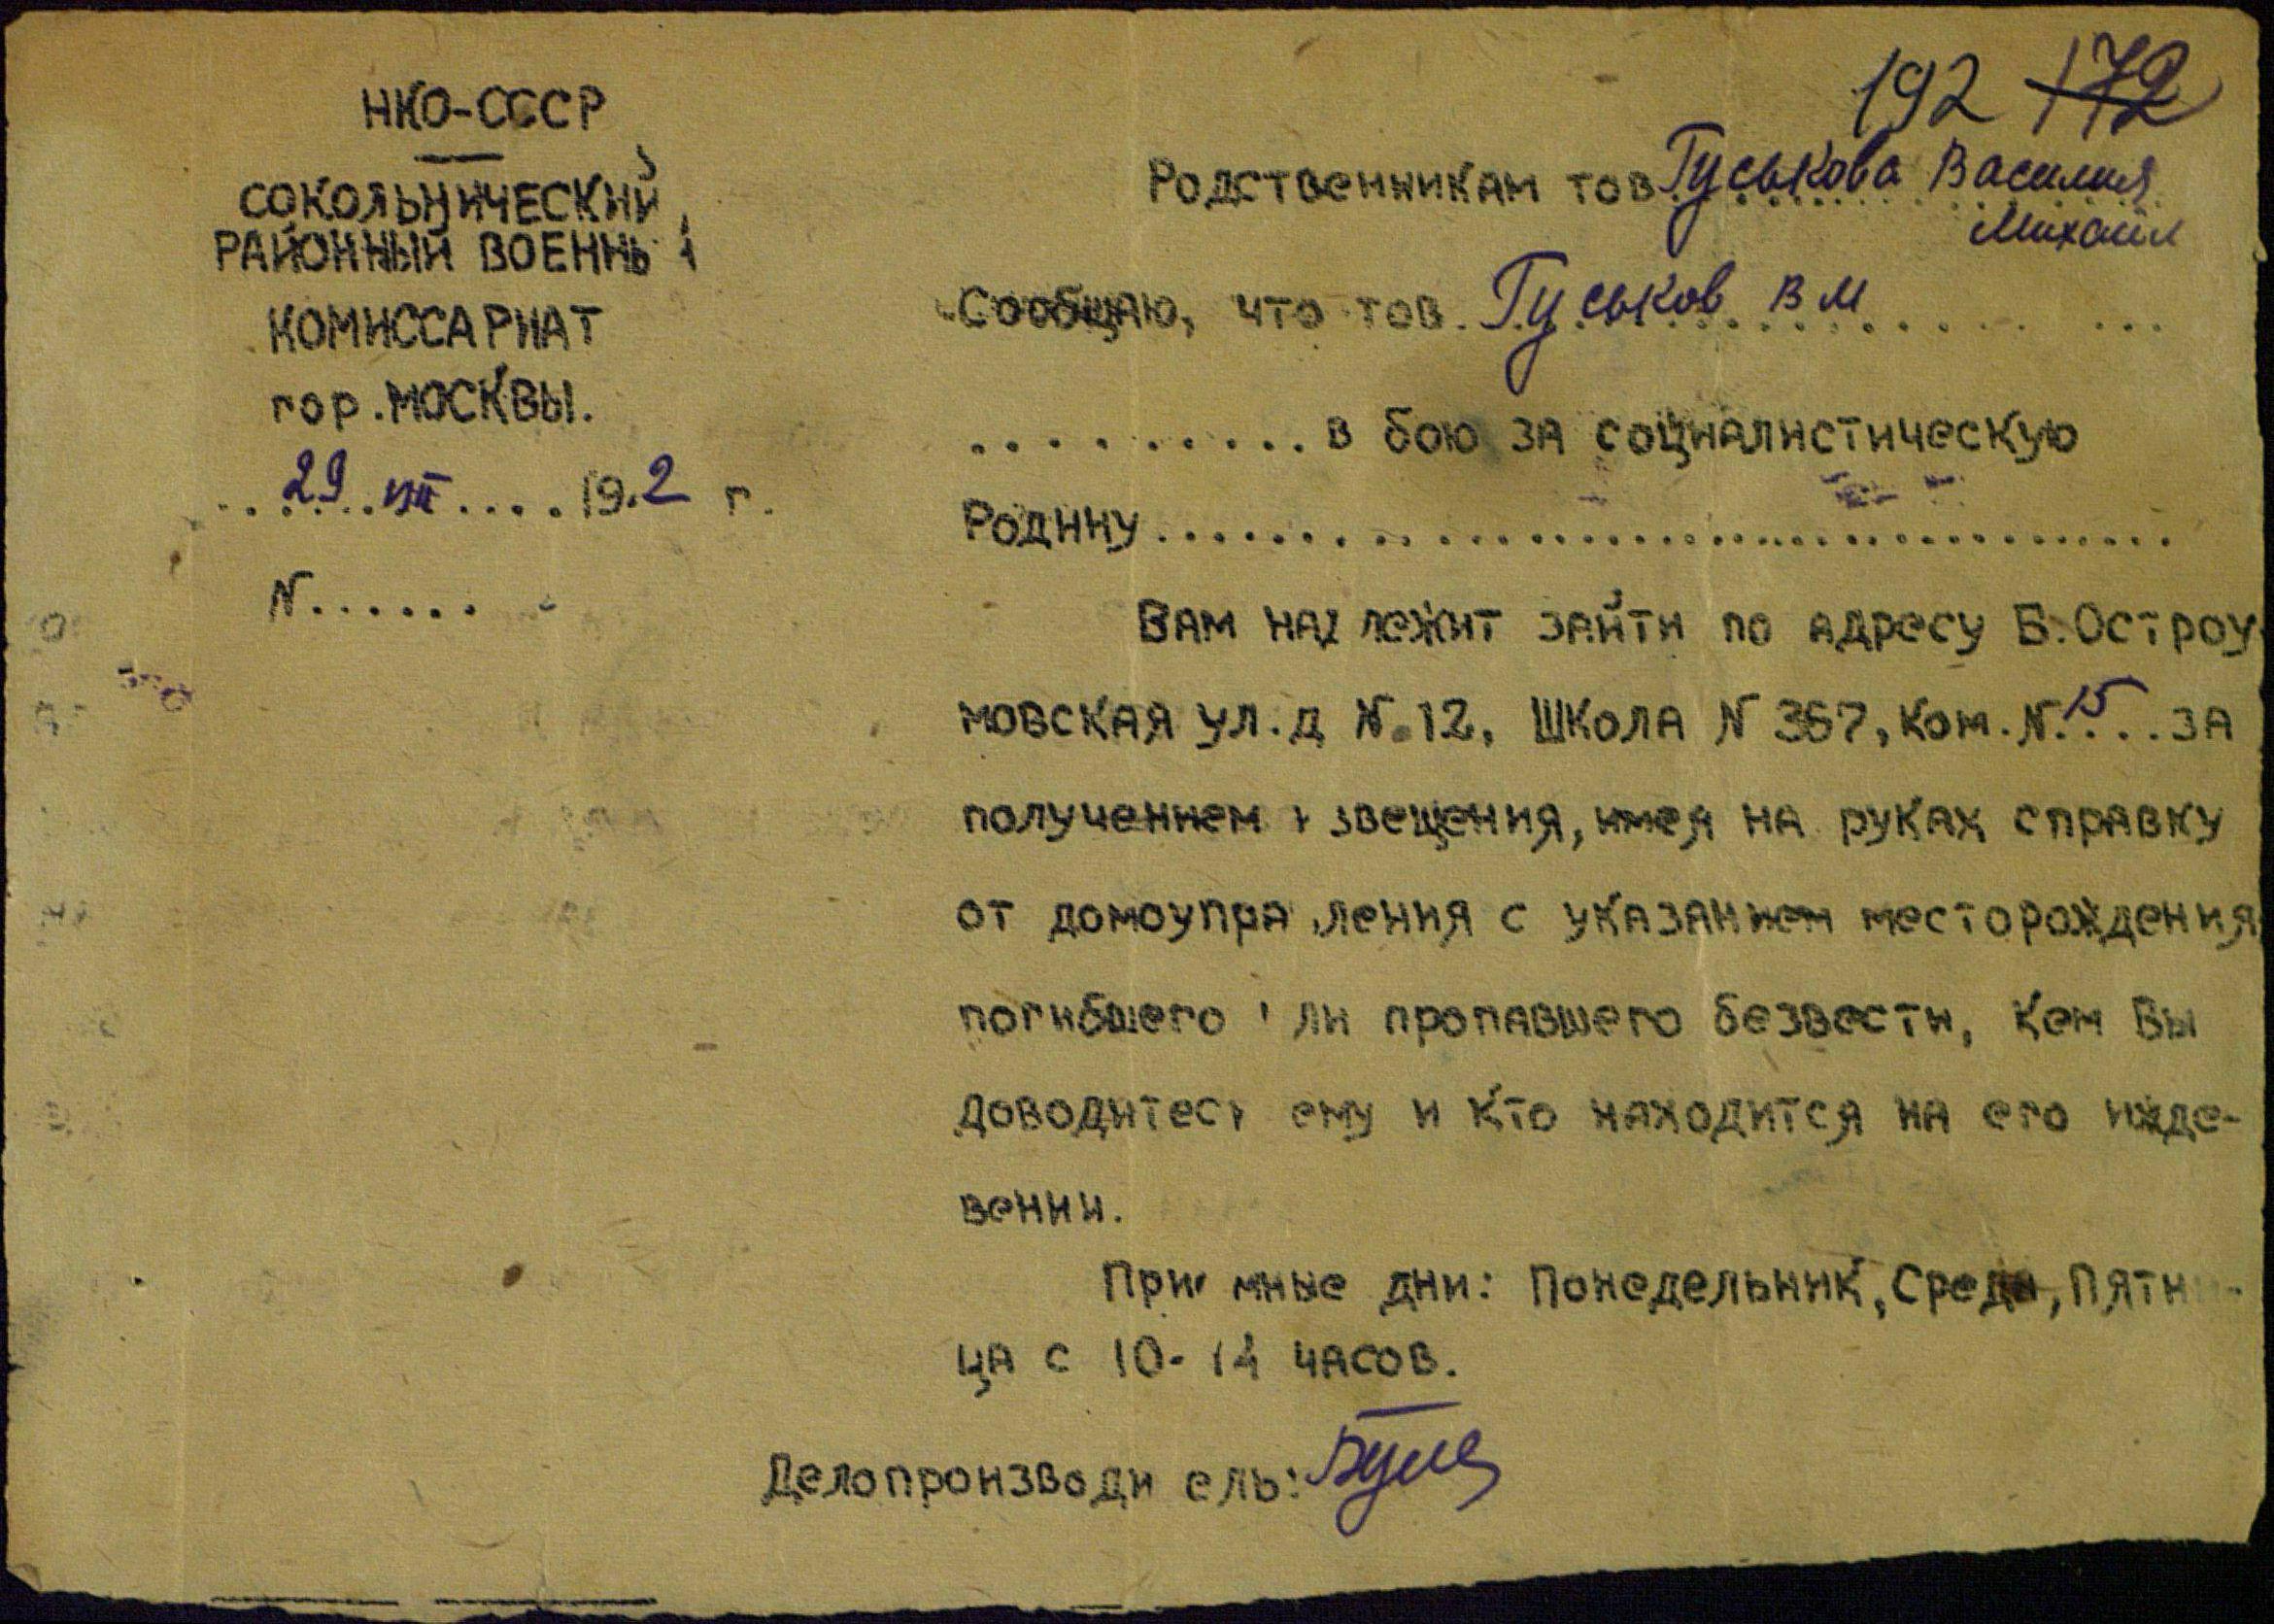 192 172
НКО-СССР
СОКОЛЬНИЧЕСКИЙ
РАЙОННЫЙ ВОЕННЫЙ
КОМИССАРИАТ
гор. МОСКВЫ.
..29..VIII....19.2 г.
N......
Родственникам тов. Гуськова Василия
Михаил
Сообщаю, что тов. Гуськов В М
.......... в бою за социалистическую
Родину....................................
Вам надлежит зайти по адресу Б. Остроу
мовская ул. д N.12, Школа N 367, ком. N.15...за
получением извещения, имея на руках справку
от домоуправления с указанием месторождения
погибшего или пропавшего безвести, кем Вы
доводитесь ему и кто находится на его ижде-
вении.
Приемные дни: Понедельник, Среда, Пятни-
ца с 10-14 часов.
Делопроизводи ель: